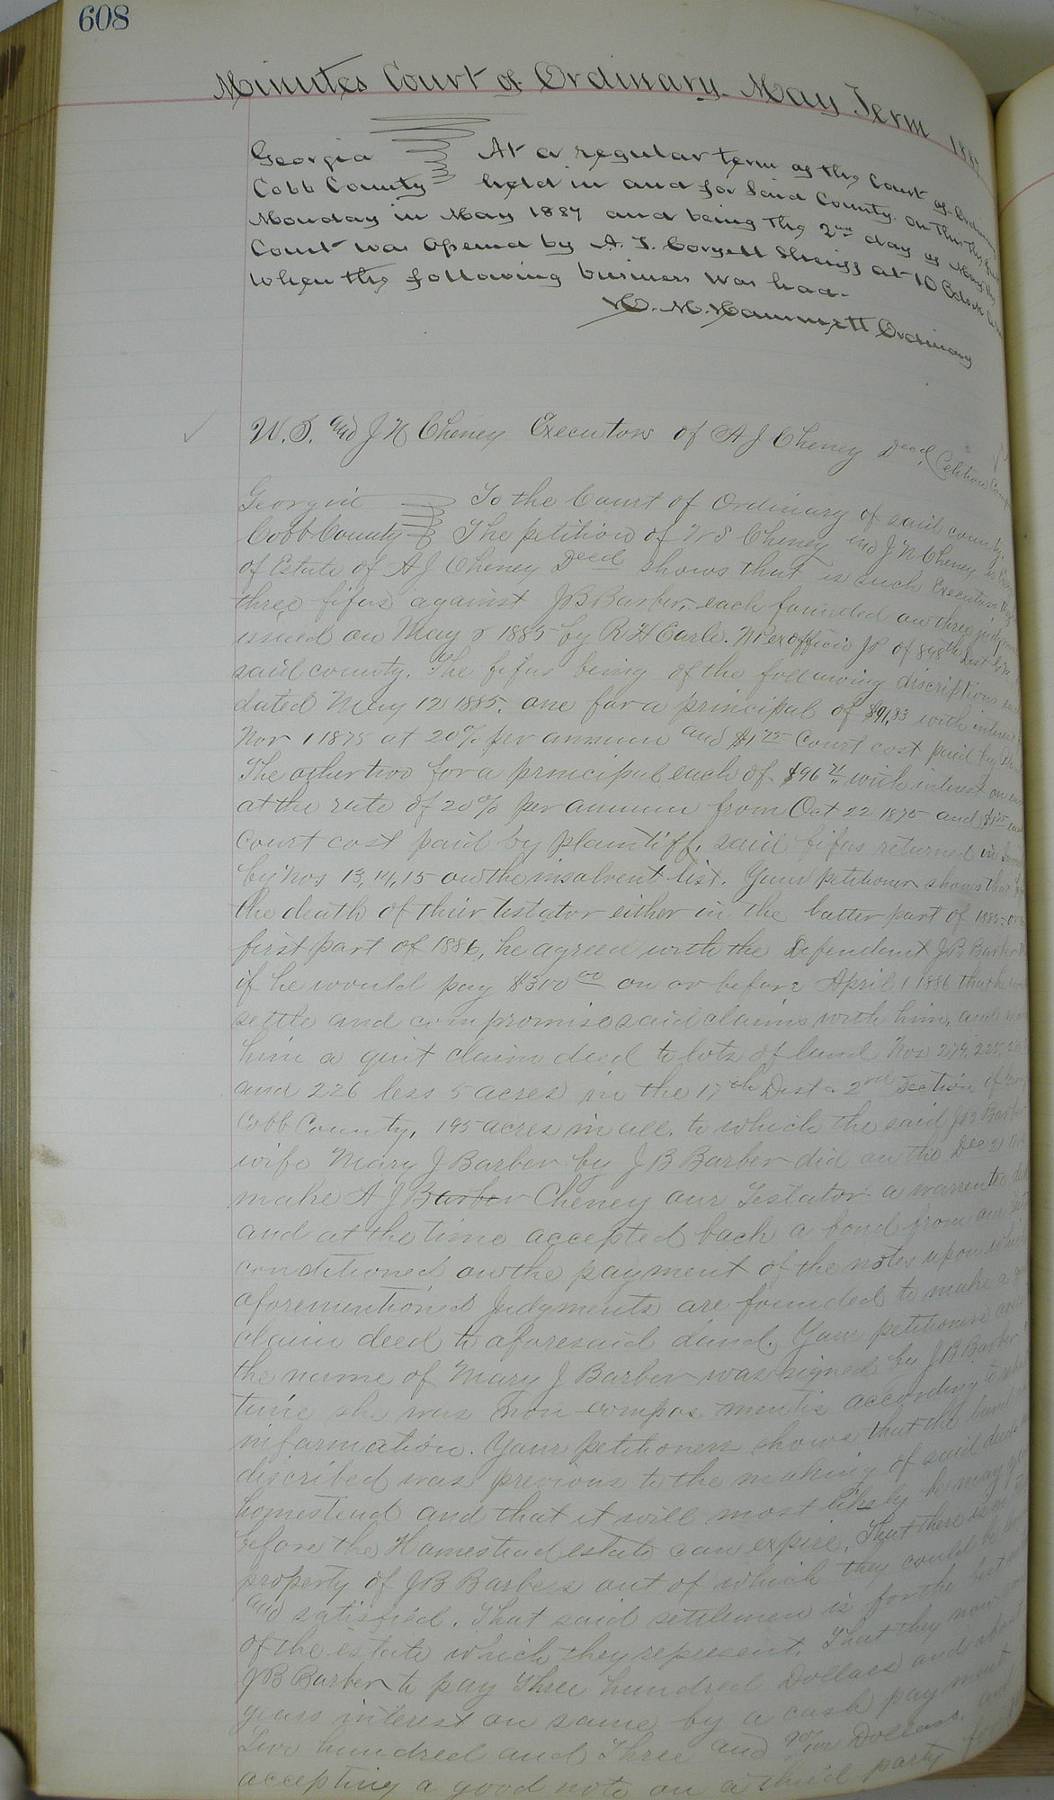 608
Minutes Court of Ordinary. May Term
Georgia At a regular term of the Court of Ordinary
Cobb County held in and for Said County. on this the first
Monday in May 1887 and being the 2nd day of May, the
Court was opened by A. J. Coryell Sheriff at 10 Oclock
When the following business was had.
H. M. Hammett Ordinary
W. S. and J N Cheney Executors of A J Cheney Decd Petition
Georgia To the Court of Ordinary of said county.
Cobb County The petition of W S Cheney and J N Cheney
of Estate of A J Cheney Decd shows that as such Executors
three fifas against J B Barber, each founded on three
issued on May 8 1885 by R H Carle. NP exofficio JP of 898th Dist
said county. The fifas being of the following description
dated May 12 1885. one for a principal of $91.83 with interest
Nov 1 1875 at 20% per annum and $1 75 Court cost paid by
The other two for a principal each of $96 71 with interest on
at the rate of 20% per annum from Oct 22 1875 and
court cost paid by plaintiff. said fifas returned
by Nos 13, 14, 15 on the insolvent list. Your petitioners shows that
the death of their testator either in the latter part of 1885 or
first part of 1886, he agreed with the Defendant J B Barber
if he would pay $300 00 on or before April 1 1886 that he
settle and compromise said claims with him, and
him a quit claim deed to lots of land Nos 279, 225,
and 226 less 5 acres in the 17th Dist. 2nd Section of
Cobb County, 195 acres in all. to which the said J B Barber
wife Mary J Barber by J B Barber did on the Dec 2
make A J Barber Cheney our Testator a warrente
and at the time accepted back a bond from our
conditioned on the payment of the notes upon which
aforementioned Judgments are founded to make a
claim deed to aforesaid land. Your petitioners
the name of Mary J Barber was signed by J B Barber
time she was Non compos mentis according to
information. Your petitioners shows that the land
discribed was previous to the making of said deed
homestead and that it will most likely be may
before the Homestead estate can expire. That there is
property of J B Barbers out of which they could be
and satisfied. That said settlemen is for the best
of the estate which they represent. That they now
J B Barber to pay Three hundred Dollars and
years interest on same by a cash payment
Two hundred and Three and Dollars. and
accepting a good note on a third party